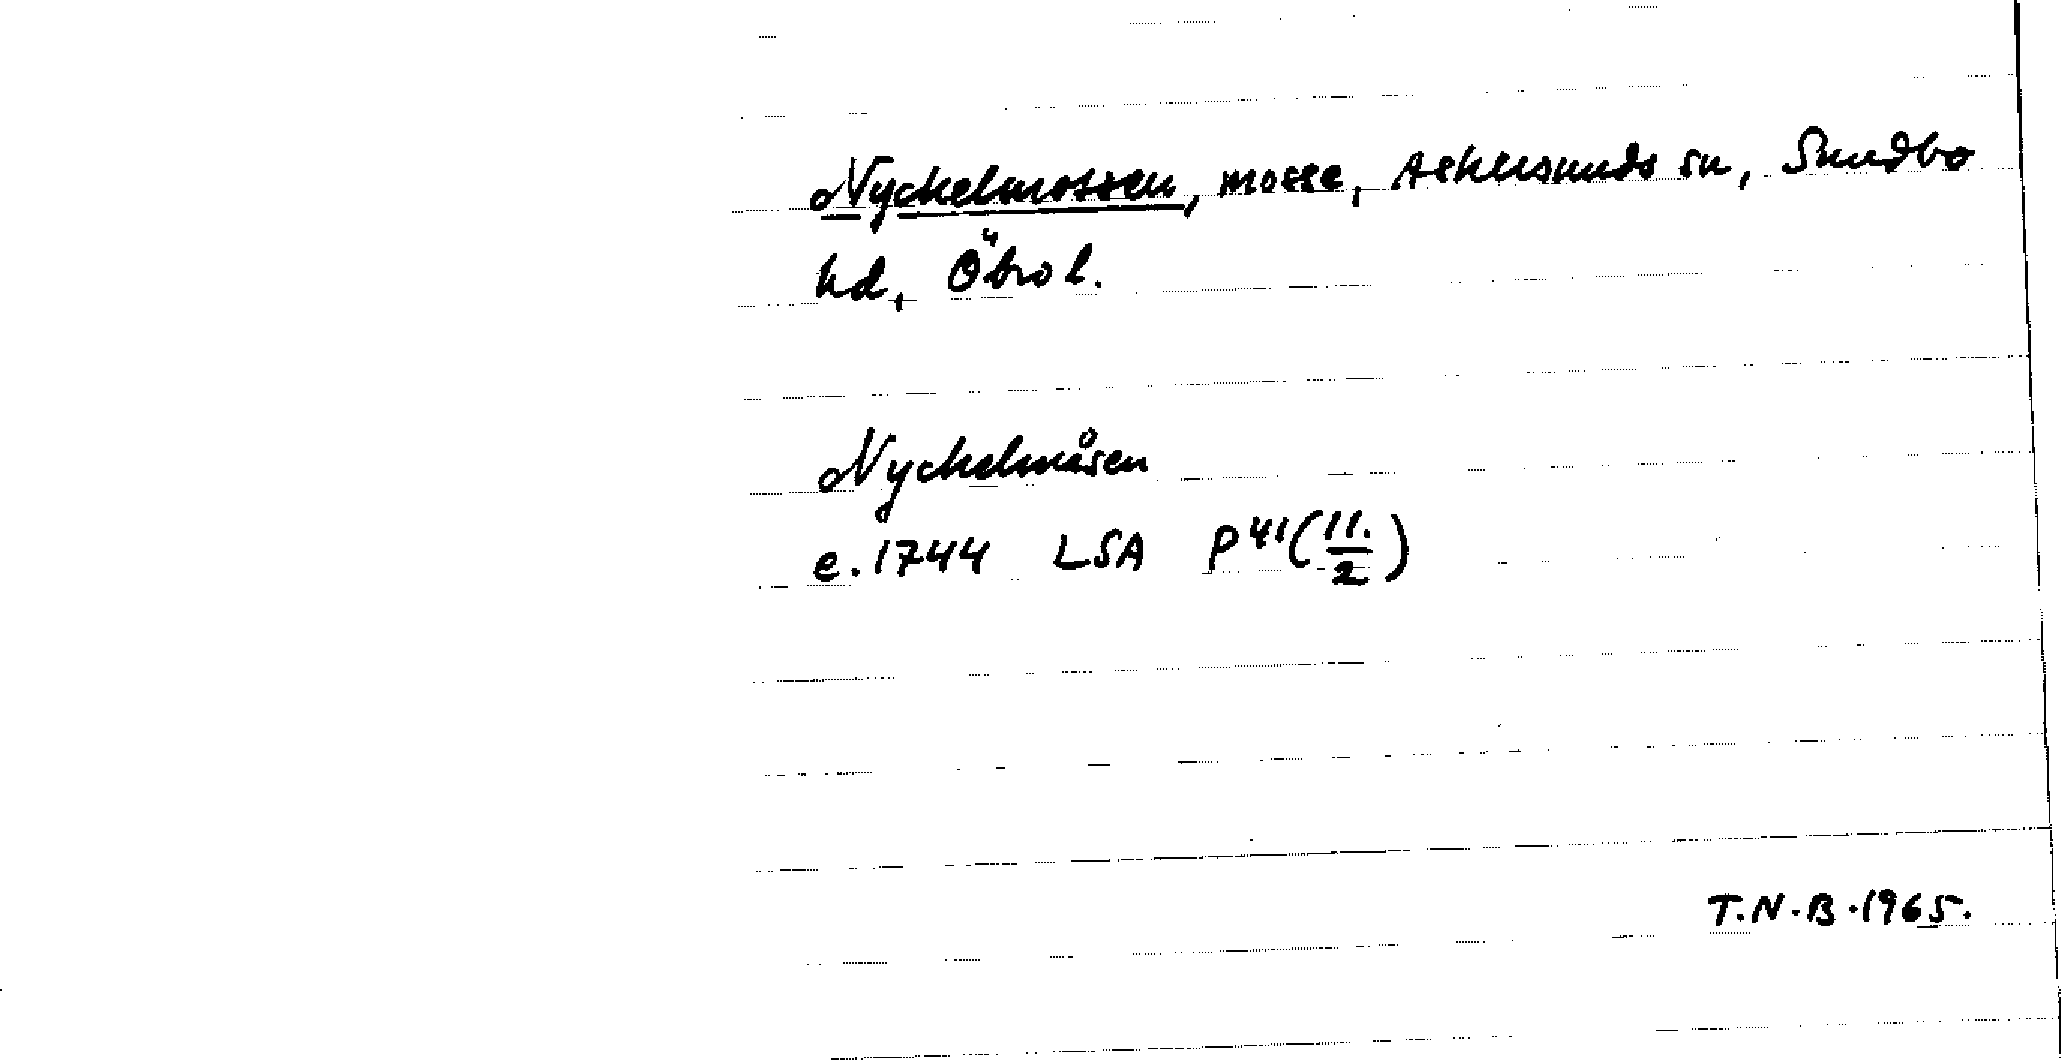 Nyckelmossen, mosse, Askersunds sn, Sundbo
hd, Öbro l.
Nyckelmåsen
c. 1744 LSA P 41 (11./2)
T.N.B. 1965.